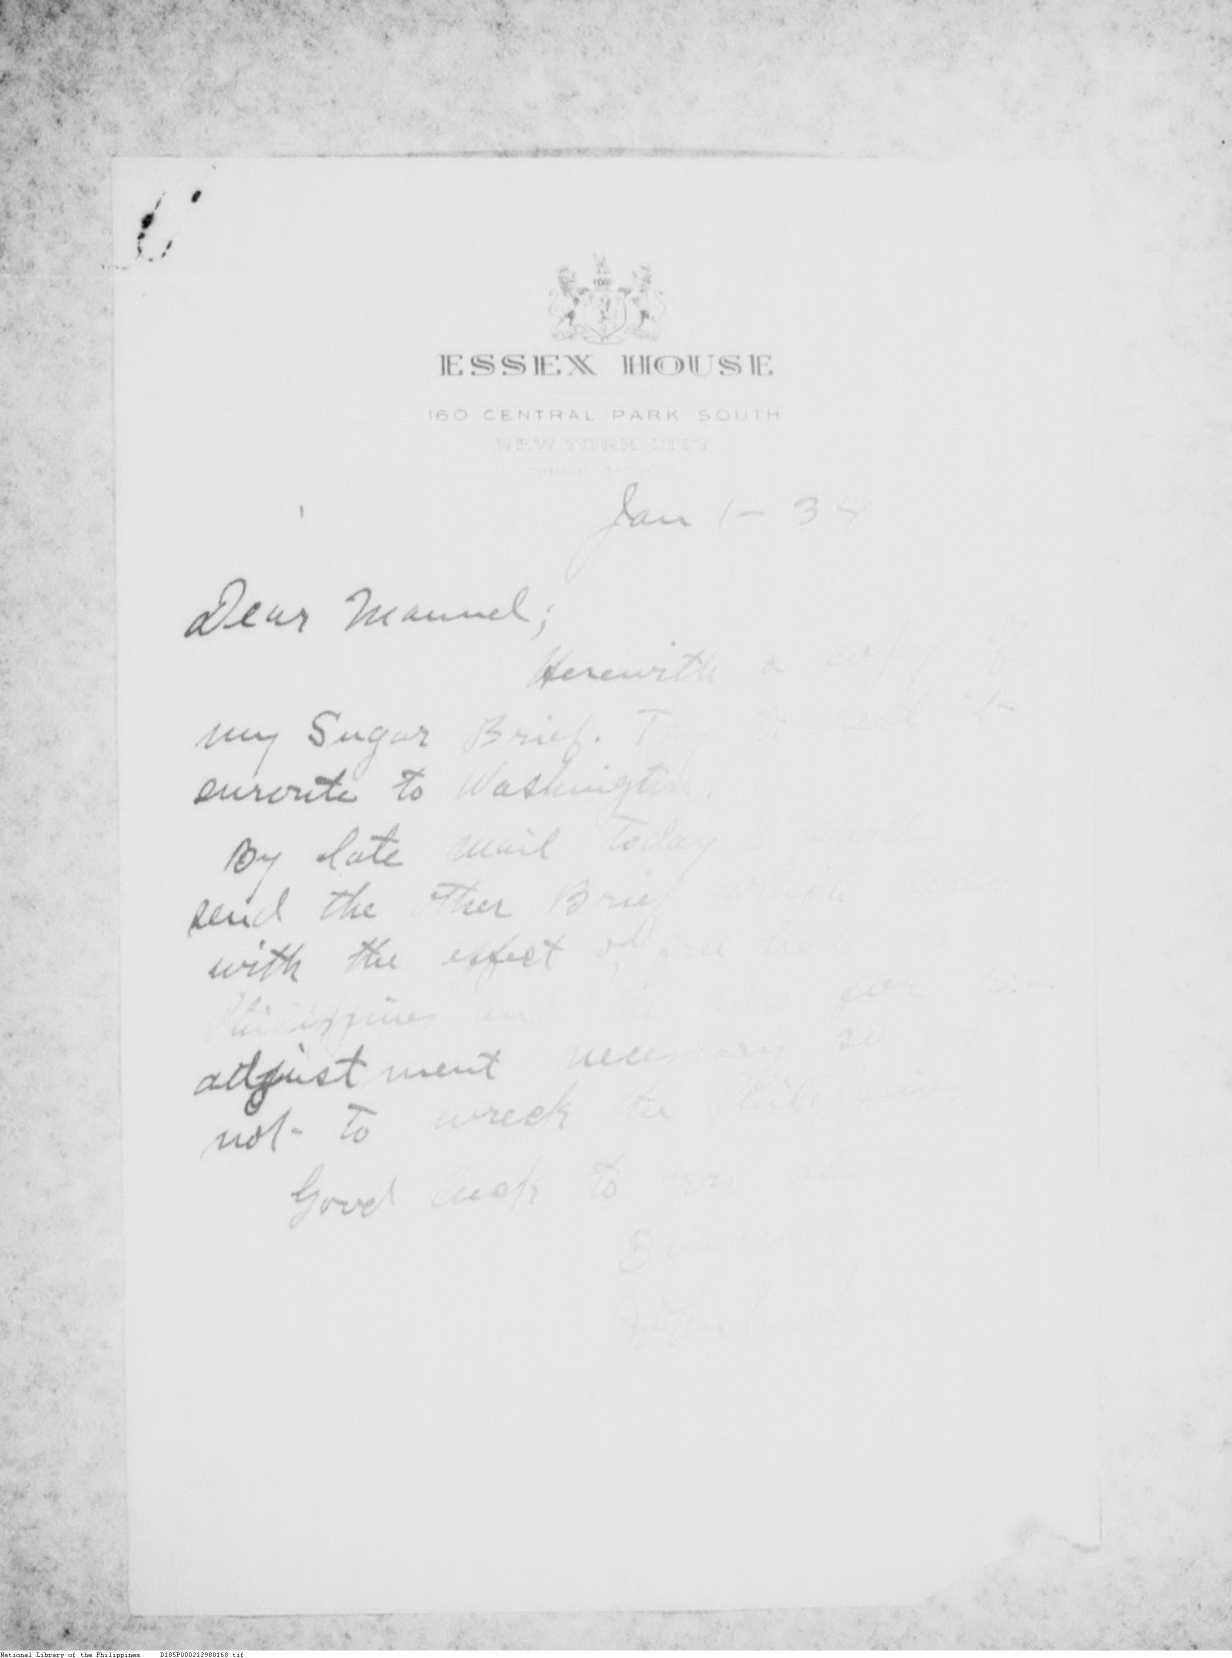 ESSEX HOUSE
160 CENTRAL PARK SOUTH
NEW YORK CITY
Jan 1 - 34
Dear Manuel;
Herewith a copy of
my Sugar Brief. Try to read it
enroute to Washington.
By late mail today I will
send the other Brief which
with the effect of free trade
Philippines and the for
adjustment necessary so
not to wreck the Philippines
Good luck to you
National Library of the Philippines D185P000212980168.tif